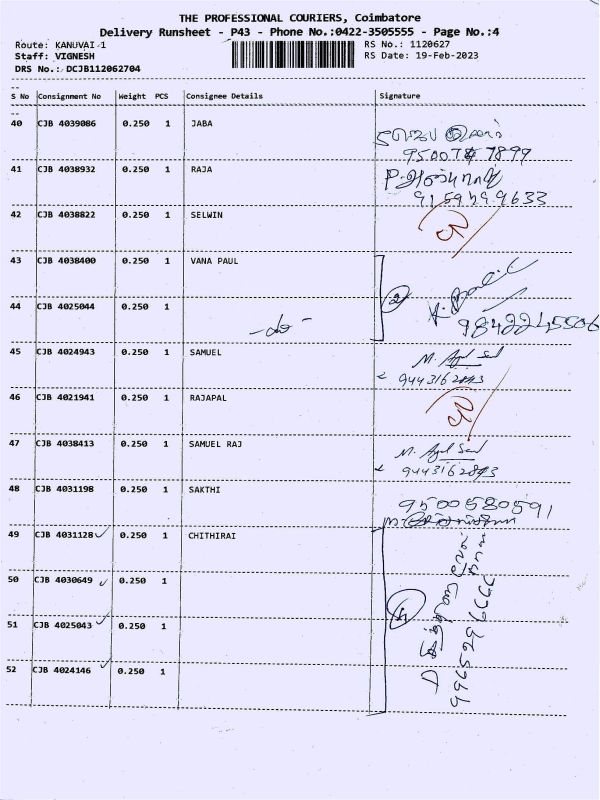 THE PROFESSIONAL COURIERS, Coimbatore
Delivery Runsheet - P43 - Phone No.:0422-3505555 - Page No.:4
Route: KANUVAI 1
RS No.: 1120627
Staff: VIGNESH
RS Date: 19-Feb-2023
DRS No.: DCJB112062704
S No Consignment No Weight PCS Consignee Details Signature
40 CJB 4039086 0.250 1 JABA
41 CJB 4038932 0.250 1 RAJA
42 CJB 4038822 0.250 1 SELWIN
43 CJB 4038400 0.250 1 VANA PAUL
2
44 CJB 4025044 0.250 1 -do-
9842245506
45 CJB 4024943 0.250 1 SAMUEL
9443162893
46 CJB 4021941 0.250 1 RAJAPAL
47 CJB 4038413 0.250 1 SAMUEL RAJ
9443162893
48 CJB 4031198 0.250 1 SAKTHI
9500580591
49 CJB 4031128 ✓ 0.250 1 CHITHIRAI
50 CJB 4030649 ✓ 0.250 1
51 CJB 4025043 ✓ 0.250 1
52 CJB 4024146 ✓ 0.250 1
9965296666